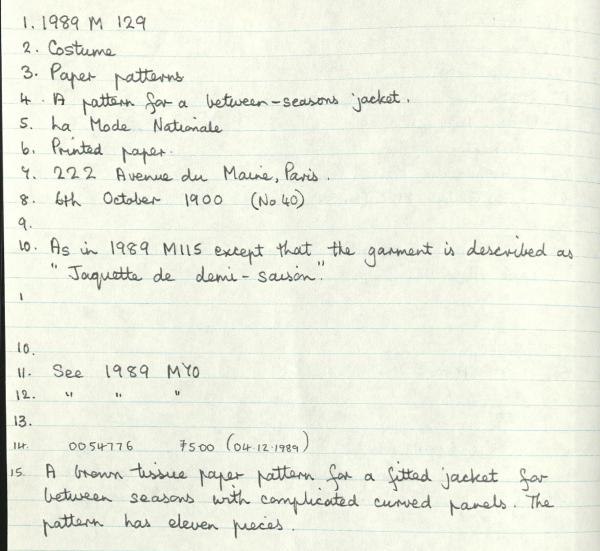 1. 1989 M 129
2. Costume
3. Paper patterns
4. A pattern for a between-seasons jacket.
5. La Mode Nationale
6. Printed paper.
7. 222 Avenue du Maine, Paris.
8. 6th October 1900 (No 40)
9.
10. As in 1989 M115 except that the garment is described as
"Jaquette de demi-saison."
1
10.
11. See 1989 M70
12. " " "
13.
14. 0054776 7500 (04.12.1989)
15. A brown tissue paper pattern for a fitted jacket for
between seasons with complicated curved panels. The
pattern has eleven pieces.